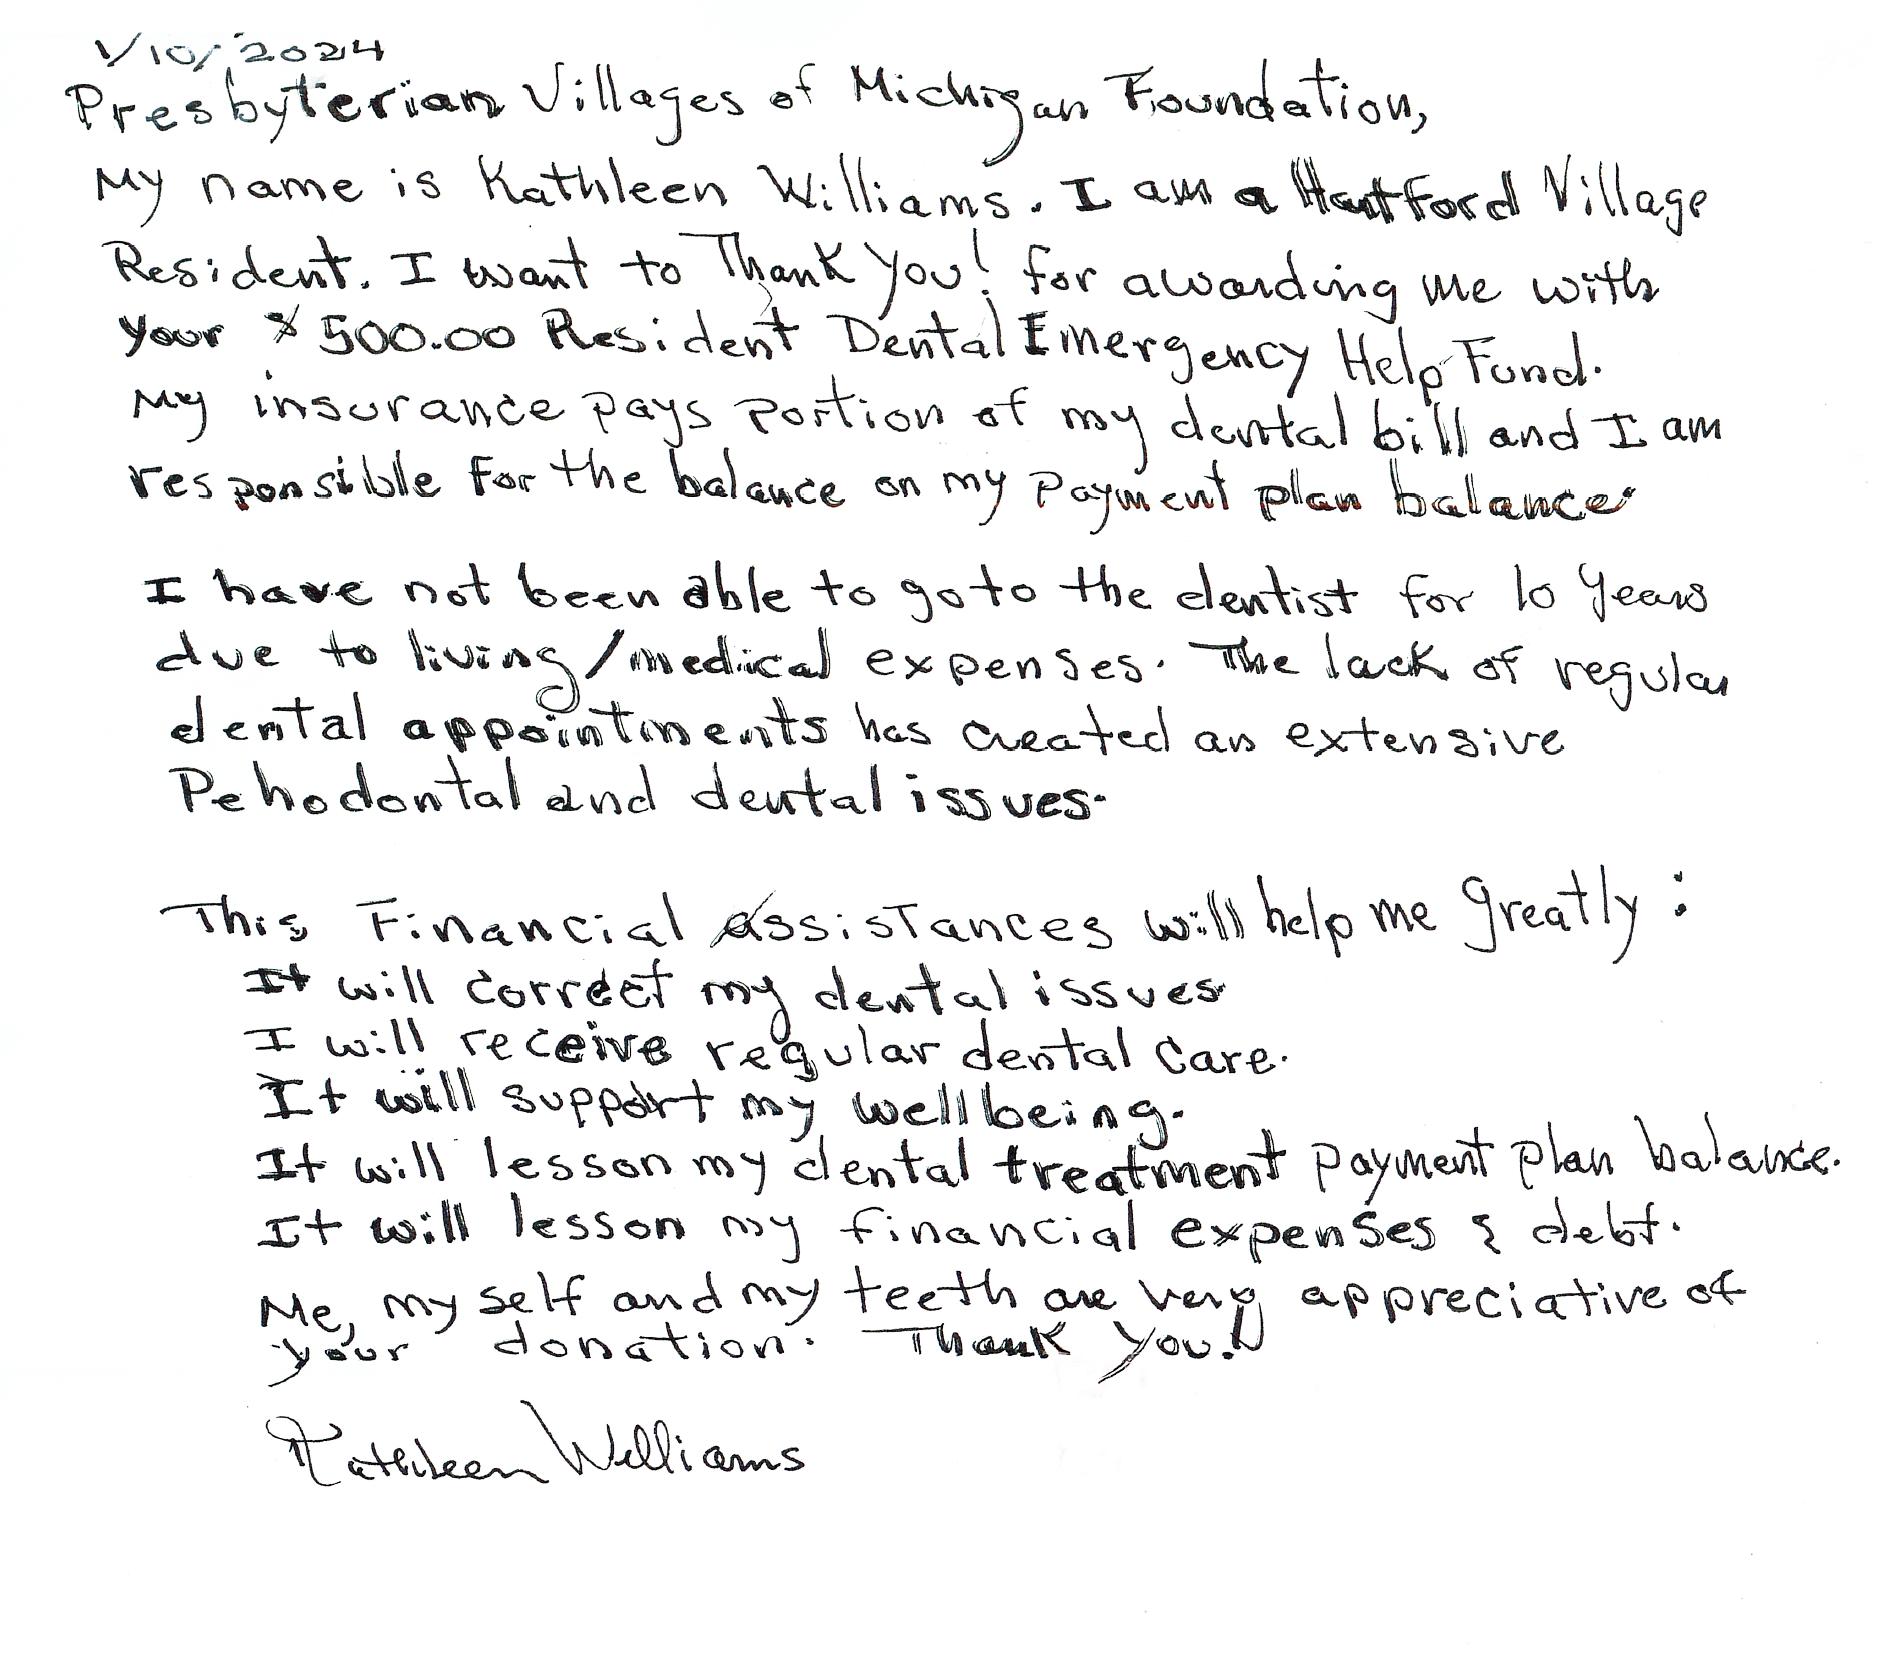 1/10/2024
Presbyterian Villages of Michigan Foundation,
My name is Kathleen Williams. I am a Hartford Village
Resident. I want to Thank You! for awarding me with
your $500.00 Resident Dental Emergency Help Fund.
My insurance pays portion of my dental bill and I am
responsible for the balance on my payment plan balance.
I have not been able to go to the dentist for 10 years
due to living/medical expenses. The lack of regular
dental appointments has created an extensive
Periodontal and dental issues.
This Financial assistances will help me greatly:
It will correct my dental issues
I will receive regular dental care.
It will support my wellbeing.
It will lesson my dental treatment payment plan balance.
It will lesson my financial expenses & debt.
Me, my self and my teeth are very appreciative of
your donation. Thank You!
Kathleen Williams